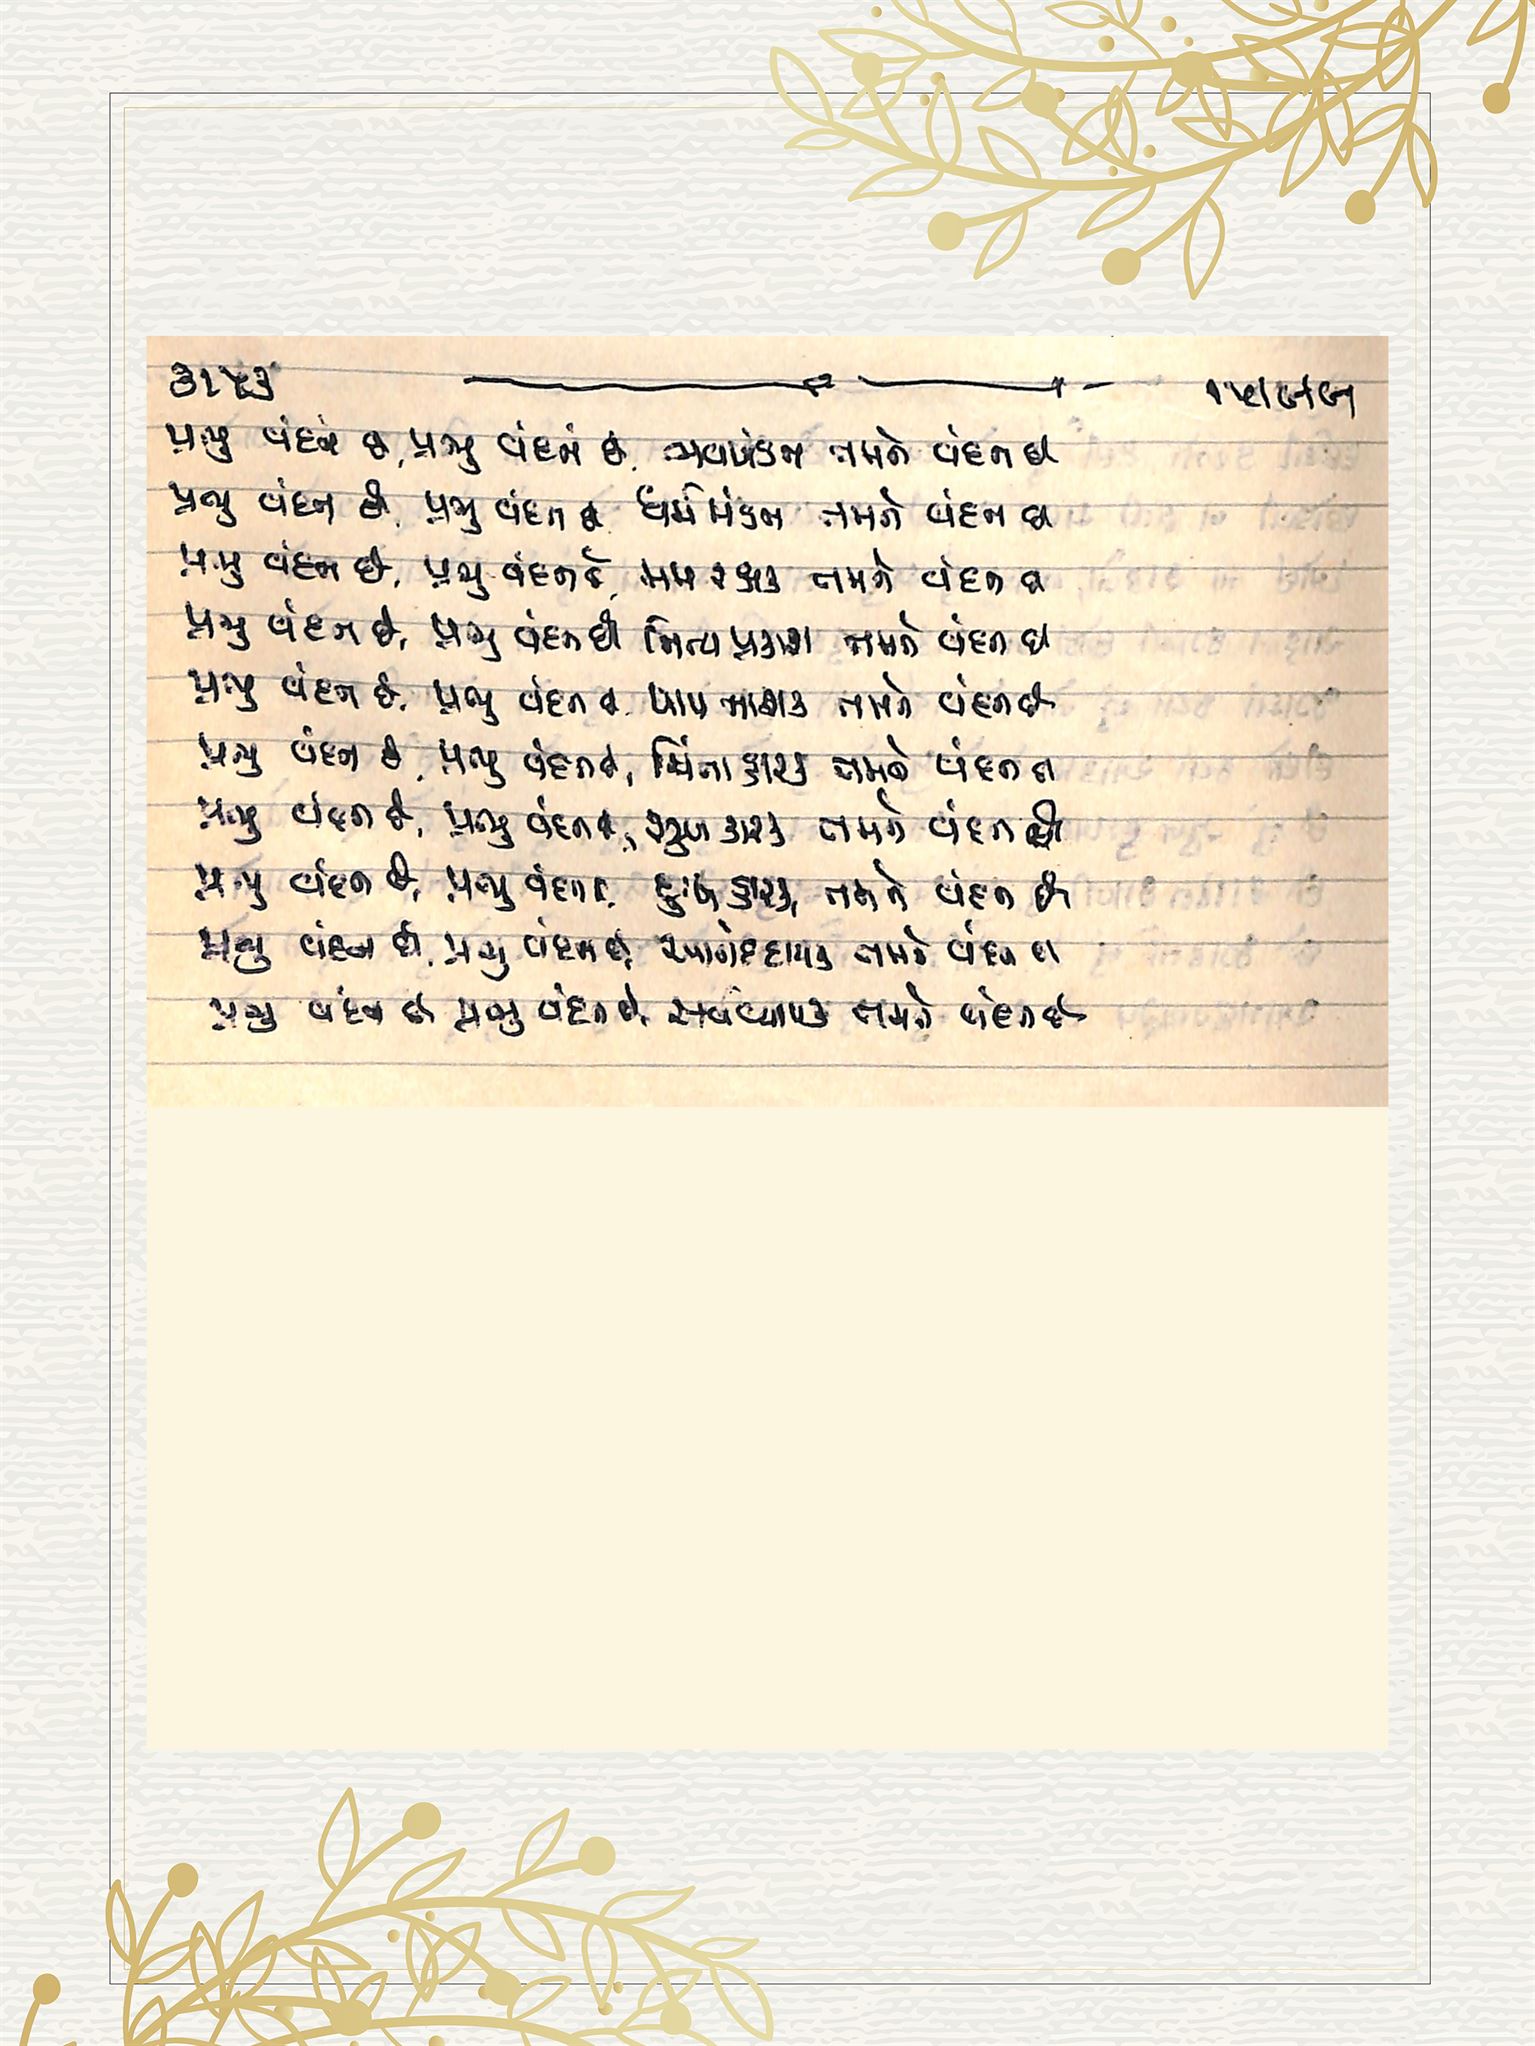 પ્રભુ વંદન છે, પ્રભુ વંદન છે, ભવખંડન તમને વંદન છે
પ્રભુ વંદન છે, પ્રભુ વંદન છે, ધર્મ મંડન તમને વંદન છે
પ્રભુ વંદન છે, પ્રભુ વંદન છે, મમ રક્ષક તમને વંદન છે
પ્રભુ વંદન છે, પ્રભુ વંદન છે નિત્ય પ્રકાશ તમને વંદન છે
પ્રભુ વંદન છે, પ્રભુ વંદન છે, પાપ નાશક તમને વંદન છે
પ્રભુ વંદન છે, પ્રભુ વંદન છે, ચિંતા તમને વંદન છે
પ્રભુ વંદન છે, પ્રભુ વંદન છે, સુખ કારક તમને વંદન છે
પ્રભુ વંદન છે, પ્રભુ વંદન છે, દુઃખ તમને વંદન છે
પ્રભુ વંદન છે, પ્રભુ વંદન છે, આનંદદાયક તમને વંદન છે
પ્રભુ વંદન છે પ્રભુ વંદન છે, સર્વવ્યાપક તમને વંદન છે